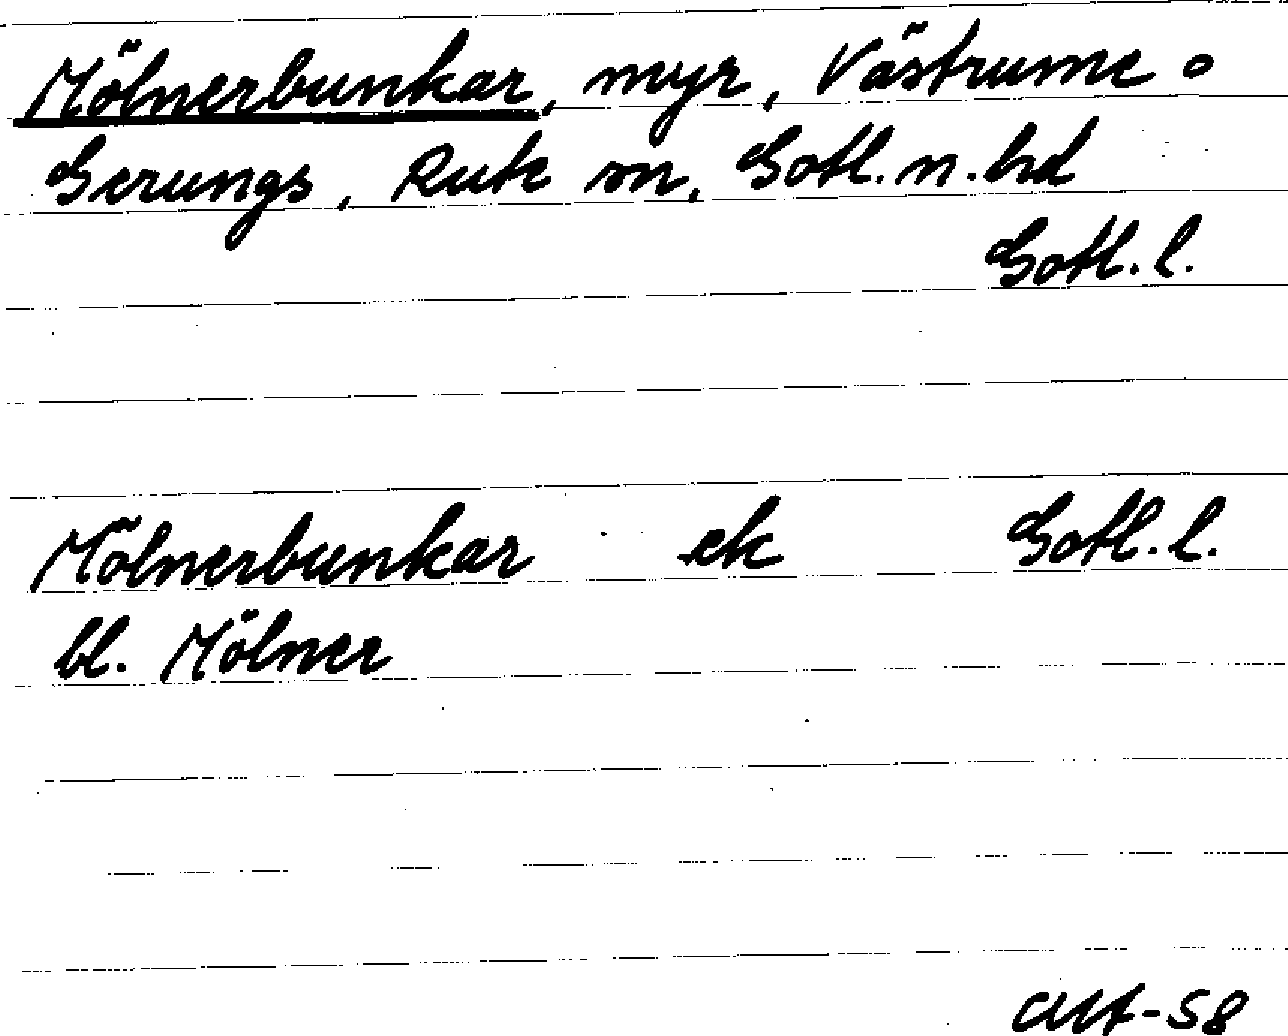 Mölnerbunkar, myr, Västrume o
Gerungs, Rute sn, Gotl. n. hd
Gotl. l.
Mölnerbunkar ek Gotl. l.
bl. Mölner